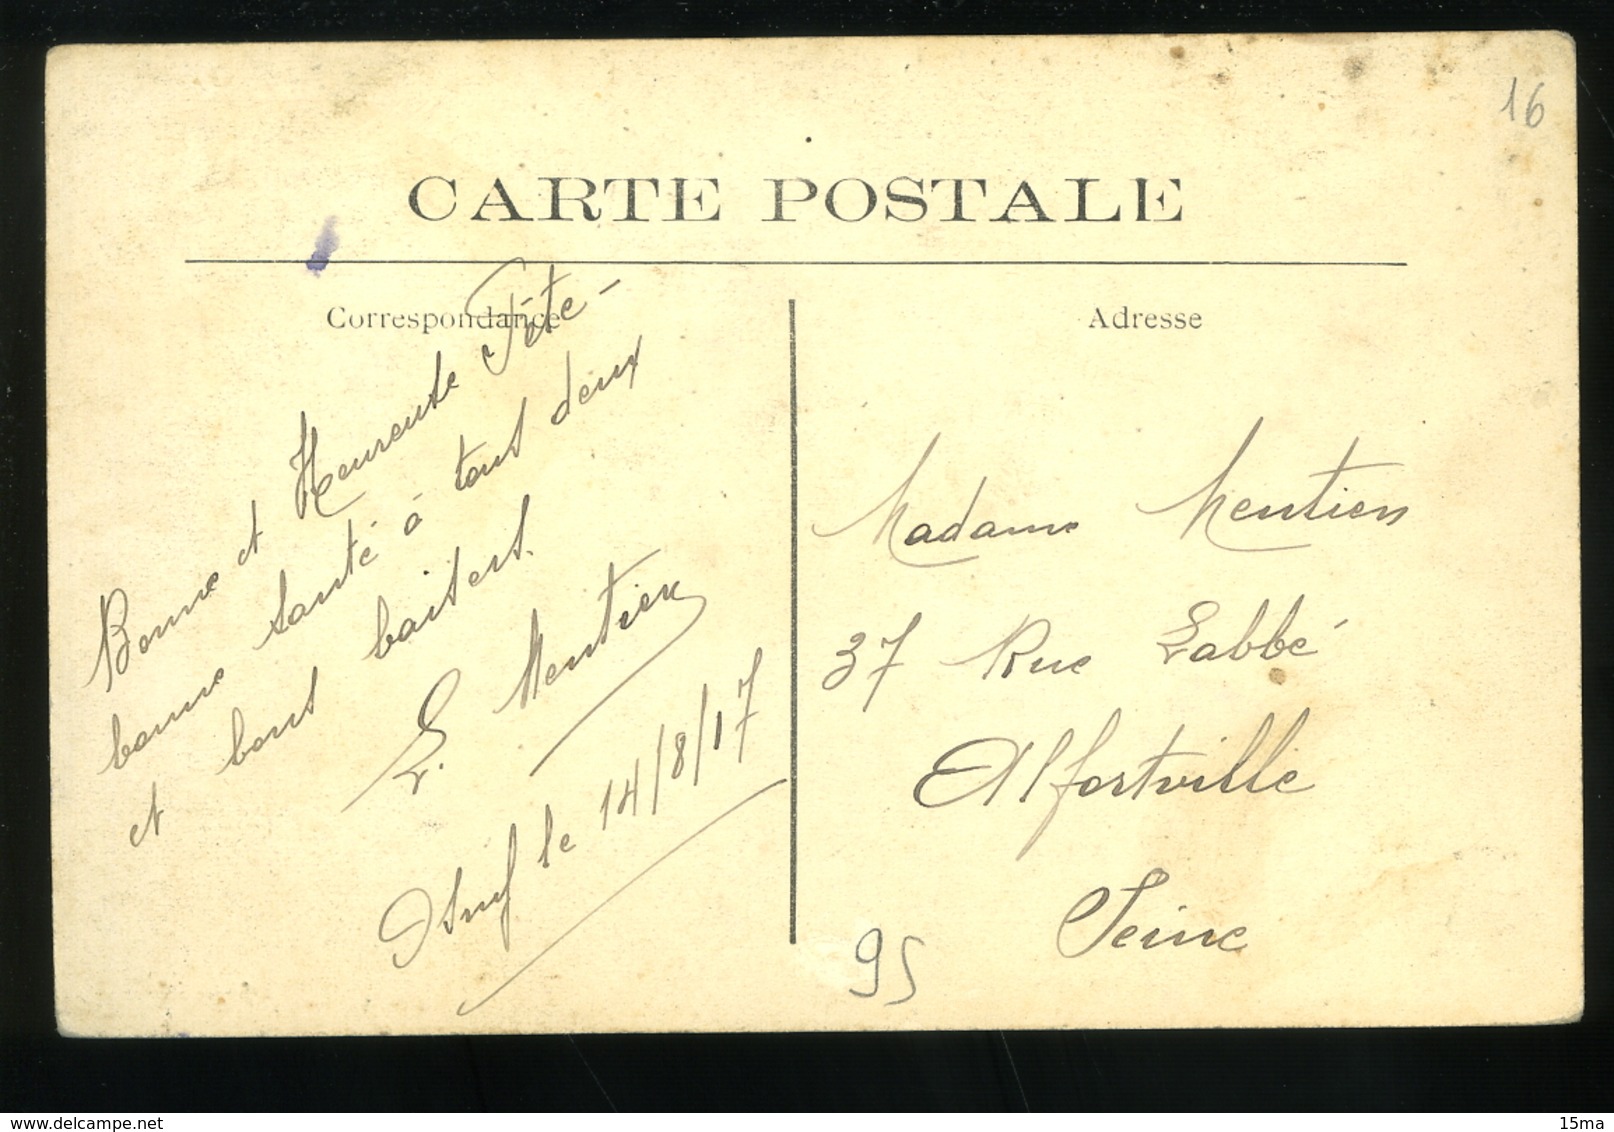 16
CARTE POSTALE
Correspondance
Bonne et Heureuse Fête -
bonne santé à tous deux
et bons baisers.
L. Mentien
le 14/8/17
Adresse
Madame Mentien
37 Rue Labbé
Alfortville
Seine
95
www.delcampe.net
15ma